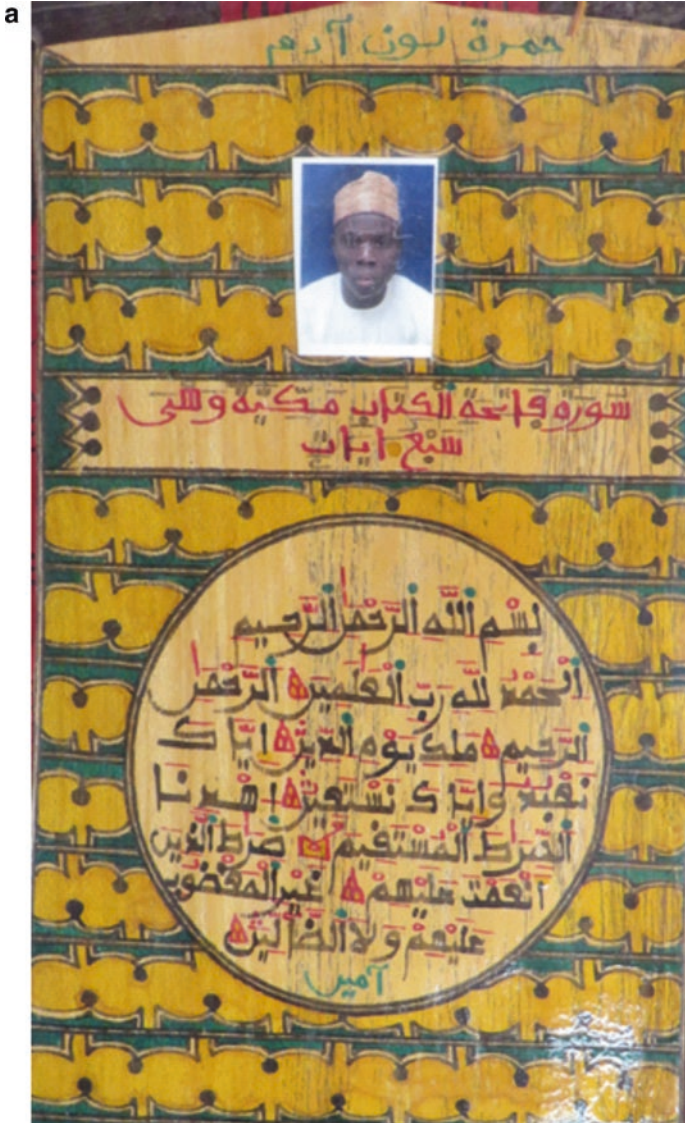 a
حمرة لون آدم
سورة فاتحة الكتاب مكية وهى
سبع ايات
بِسْمِ اللَّهِ الرَّحْمَٰنِ الرَّحِيمِ
الْحَمْدُ لِلَّهِ رَبِّ الْعَٰلَمِينَ الرَّحْمَٰنِ
الرَّحِيمِ مَلِكِ يَوْمِ الدِّينِ إِيَّاكَ
نَعْبُدُ وَإِيَّاكَ نَسْتَعِينُ اهْدِنَا
الصِّرَٰطَ الْمُسْتَقِيمَ صِرَٰطَ الَّذِينَ
أَنْعَمْتَ عَلَيْهِمْ غَيْرِ الْمَغْضُوبِ
عَلَيْهِمْ وَلَا الضَّالِّينَ
آمين